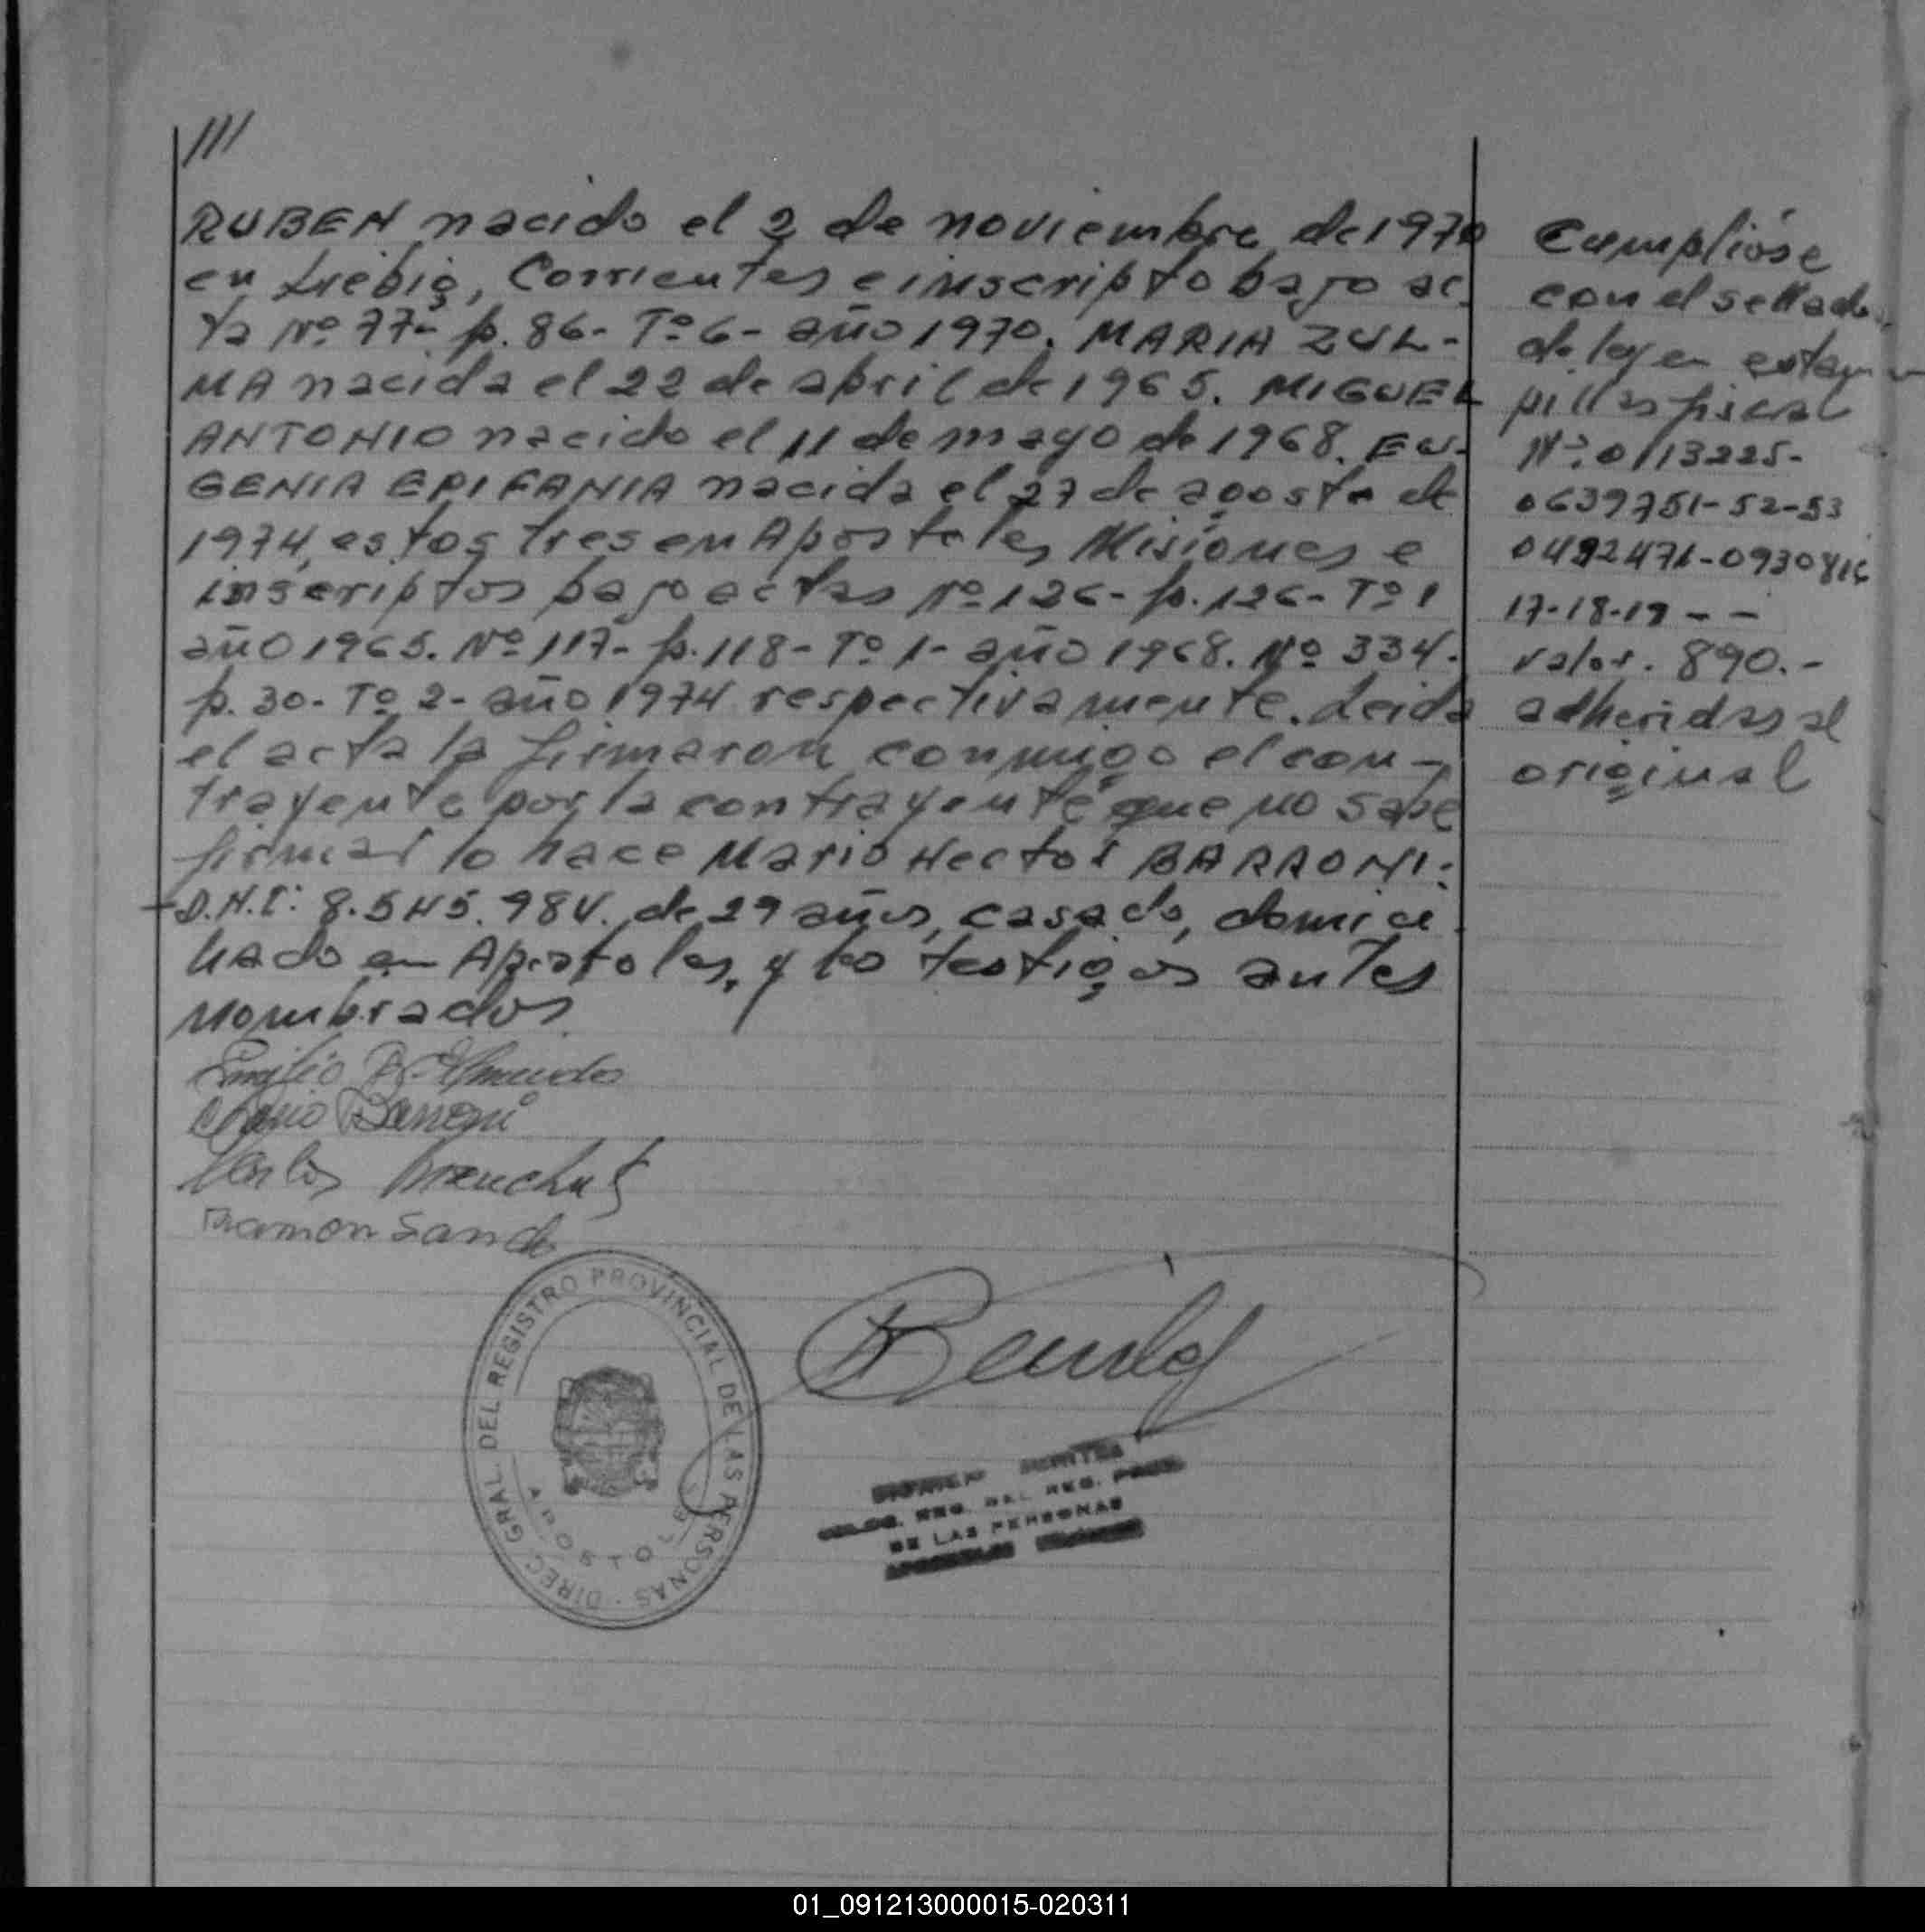 ///
RUBEN nacido el 2 de noviembre de 1970
en Liebig, Corrientes e inscripto bajo ac
ta Nº 77- p. 86- Tº 6- año 1970. MARIA ZUL-
MA nacida el 22 de abril de 1965. MIGUEL
ANTONIO nacido el 11 de mayo de 1968. EU-
GENIA EPIFANIA nacida el 27 de agosto de
1974, estos tres en Apostoles, Misiones e
inscriptos bajo actas Nº 126- p. 126- Tº 1
año 1965. Nº 117- p. 118- Tº 1- año 1968. Nº 334-
p. 30- Tº 2- año 1974 respectivamente. Leida
el acta la firmaron conmigo el con-
trayente por la contrayente que no sabe
firmar lo hace Mario Hector BARRONI:
D.N.I: 8.545.984. de 29 años, casado, domici
liado en Apostoles, y los testigos antes
nombrados
Cumplióse
con el sellado
de ley en estam
pillas fiscal
Nº. 0113225-
0639751-52-53
0492471-0930816
17-18-19 - -
valor. 890.-
adheridas al
original
Emilio
Mario Barroni
Carlos
Ramon
DIREC. GRAL. DEL REGISTRO PROVINCIAL DE LAS PERSONAS
APOSTOLES
DEL REG. PROV.
DE LAS PERSONAS
01_091213000015-020311